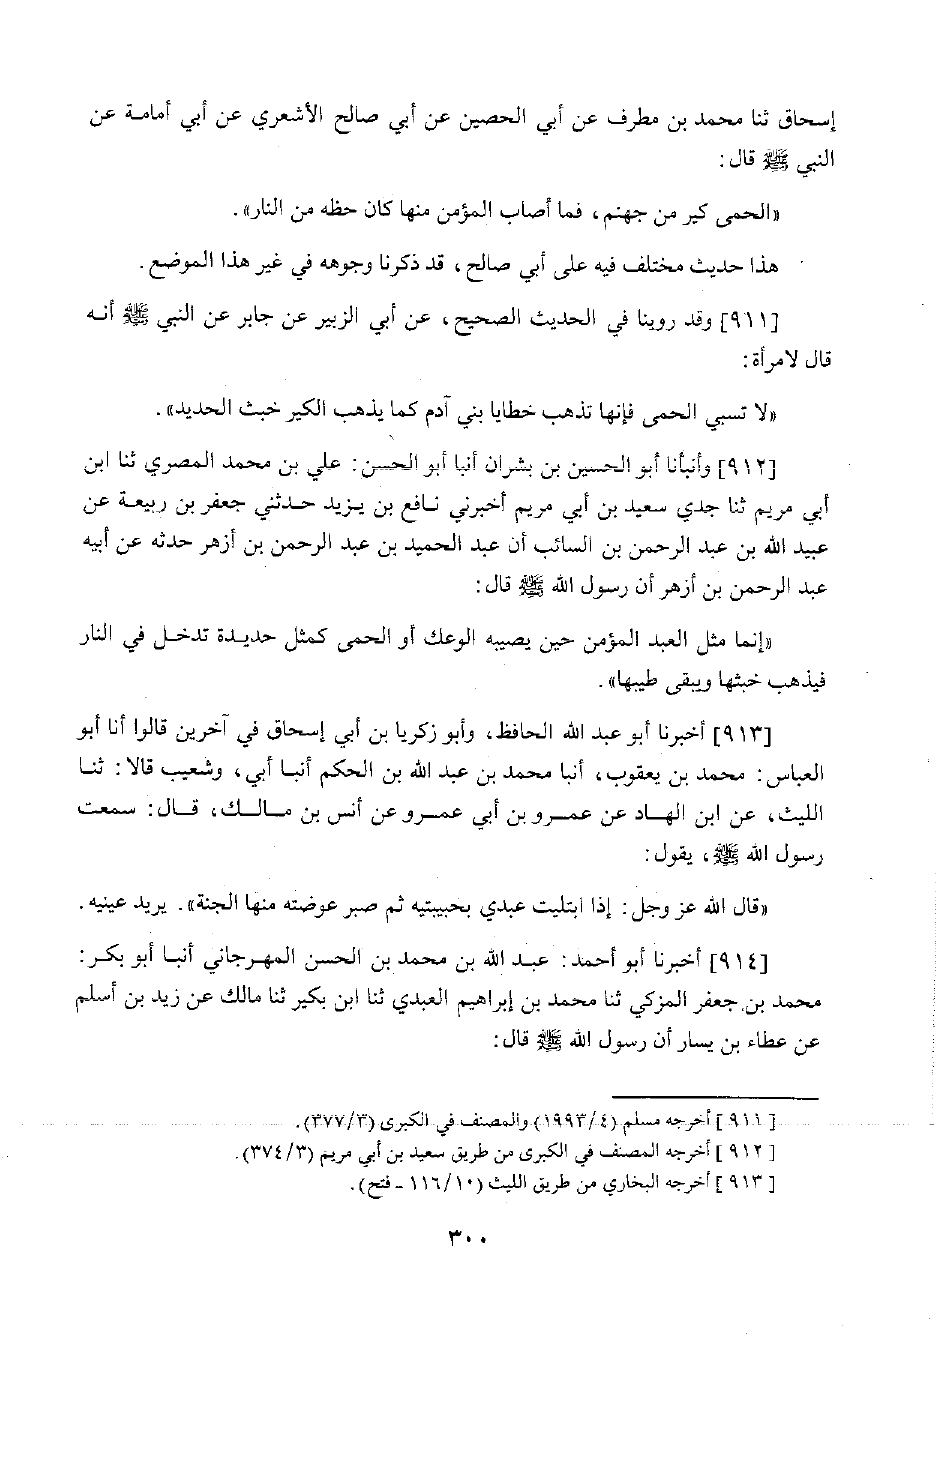 إسحاق ثنا محمد بن مطرف عن أبي الحصين عن أبي صالح الأشعري عن أبي أمامة عن
النبي ﷺ قال:
«الحمى كير من جهنم، فما أصاب المؤمن منها كان حظه من النار».
هذا حديث مختلف فيه على أبي صالح، قد ذكرنا وجوهه في غير هذا الموضع.
[٩١١] وقد روينا في الحديث الصحيح، عن أبي الزبير عن جابر عن النبي ﷺ أنه
قال لامرأة:
«لا تسبي الحمى فإنها تذهب خطايا بني آدم كما يذهب الكير خبث الحديد».
[٩١٢] وأنبأنا أبو الحسين بن بشران أنبا أبو الحسن: علي بن محمد المصري ثنا ابن
أبي مريم ثنا جدي سعيد بن أبي مريم أخبرني نافع بن يزيد حدثني جعفر بن ربيعة عن
عبيد الله بن عبد الرحمن بن السائب أن عبد الحميد بن عبد الرحمن بن أزهر حدثه عن أبيه
عبد الرحمن بن أزهر أن رسول الله ﷺ قال:
«إنما مثل العبد المؤمن حين يصيبه الوعك أو الحمى كمثل حديدة تدخل في النار
فيذهب خبثها ويبقى طيبها».
[٩١٣] أخبرنا أبو عبد الله الحافظ، وأبو زكريا بن أبي إسحاق في آخرين قالوا أنا أبو
العباس: محمد بن يعقوب، أنبا محمد بن عبد الله بن الحكم أنبا أبي، وشعيب قالا: ثنا
الليث، عن ابن الهاد عن عمرو بن أبي عمرو عن أنس بن مالك، قال: سمعت
رسول الله ﷺ، يقول:
«قال الله عز وجل: إذا ابتليت عبدي بحبيبتيه ثم صبر عوضته منها الجنة». يريد عينيه.
[٩١٤] أخبرنا أبو أحمد: عبد الله بن محمد بن الحسن المهرجاني أنبا أبو بكر:
محمد بن جعفر المزكي ثنا محمد بن إبراهيم العبدي ثنا ابن بكير ثنا مالك عن زيد بن أسلم
عن عطاء بن يسار أن رسول الله ﷺ قال:
[٩١١] أخرجه مسلم (١٩٩٣/٤) والمصنف في الكبرى (٣٧٧/٣).
[٩١٢] أخرجه المصنف في الكبرى من طريق سعيد بن أبي مريم (٣٧٤/٣).
[٩١٣] أخرجه البخاري من طريق الليث (١١٦/١٠ - فتح).
٣٠٠